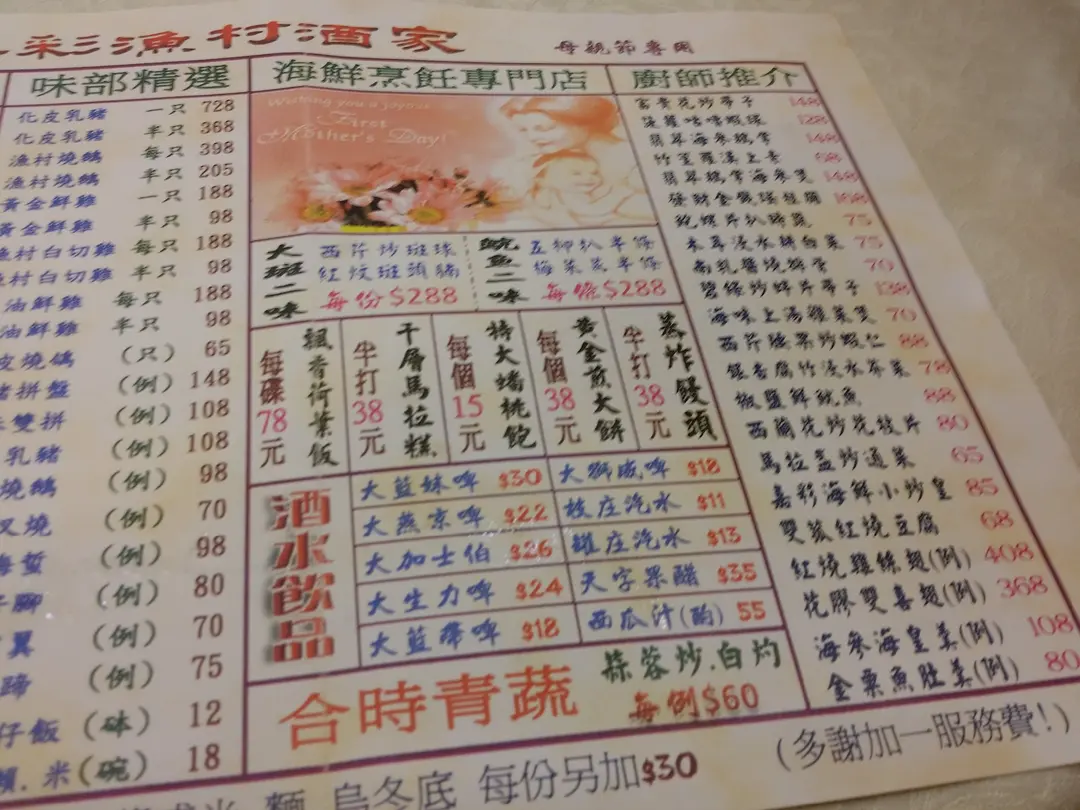 彩漁村酒家 母親節專用
味部精選
化皮乳豬 一只 728
化皮乳豬 半只 368
漁村燒鵝 每只 398
漁村燒鵝 半只 205
黃金鮮雞 一只 188
黃金鮮雞 半只 98
漁村白切雞 每只 188
漁村白切雞 半只 98
油鮮雞 每只 188
油鮮雞 半只 98
皮燒鴿 (只) 65
拼盤 (例) 148
雙拼 (例) 108
乳豬 (例) 108
燒鵝 (例) 98
叉燒 (例) 70
海蜇 (例) 98
腳 (例) 80
翼 (例) 70
蹄 (例) 75
仔飯 (砵) 12
米(碗) 18
海鮮烹飪專門店
Wishing you a joyous
First
Mother's Day!
大斑二味
西芹炒斑球
紅炆斑頭腩
每份$288
鯇魚二味
五柳扒半條
梅菜蒸半條
每條$288
飄香荷葉飯
每碟78元
千層馬拉糕
半打38元
特大蟠桃飽
每個15元
黃金煎大餅
每個38元
蒸炸饅頭
半打38元
酒水飲品
大藍妹啤 $30
大獅威啤 $18
大燕京啤 $22
枝庄汽水 $11
大加士伯 $26
罐庄汽水 $13
大生力啤 $24
天字果醋 $35
大藍帶啤 $18
西瓜汁(酌) 55
合時青蔬
蒜蓉炒.白灼
每例$60
廚師推介
富貴花炒帶子 148
菠蘿咕嚕蝦球 128
翡翠海參鵝掌 148
竹笙羅漢上素 68
翡翠鵝掌海參煲 148
發財金銀瑤柱脯 168
75
木耳浸水耕白菜 75
南乳醬燒鮮骨 70
碧綠炒蚌片帶子 138
海味上湯雜菜煲 70
西芹腰果炒蝦仁 88
銀杏腐竹浸水菜 78
椒鹽鮮魷魚 88
西蘭花炒花枝片 80
馬拉盞炒通菜 65
嘉彩海鮮小炒皇 85
雙菰紅燒豆腐 68
紅燒雞絲翅(例) 408
花膠雙喜翅(例) 368
海參海皇羹(例) 108
金粟魚肚羹(例) 80
麵 烏冬底 每份另加$30
(多謝加一服務費!)